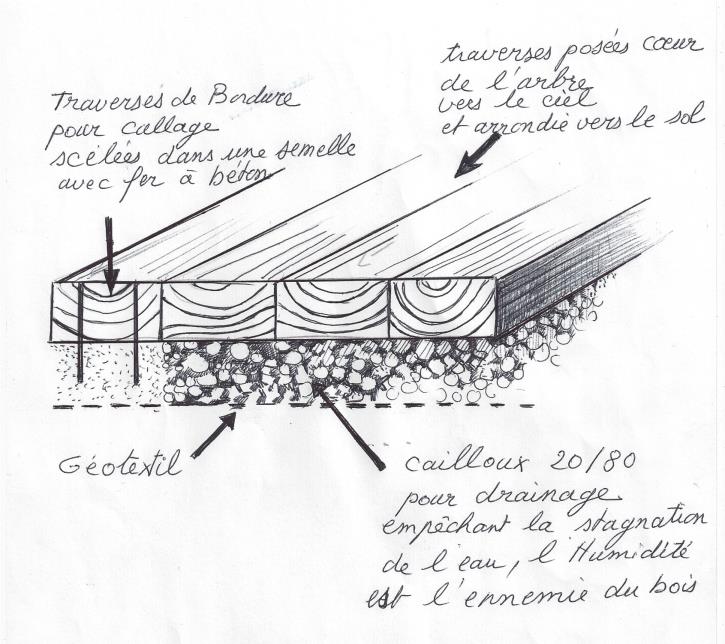 Traverses de Bordure
pour callage
scélées dans une semelle
avec fer à béton
traverses posées cœur
de l'arbre
vers le ciel
et arrondie vers le sol
Géotextil
cailloux 20/80
pour drainage
empêchant la stagnation
de l'eau, l'Humidité
est l'ennemie du bois